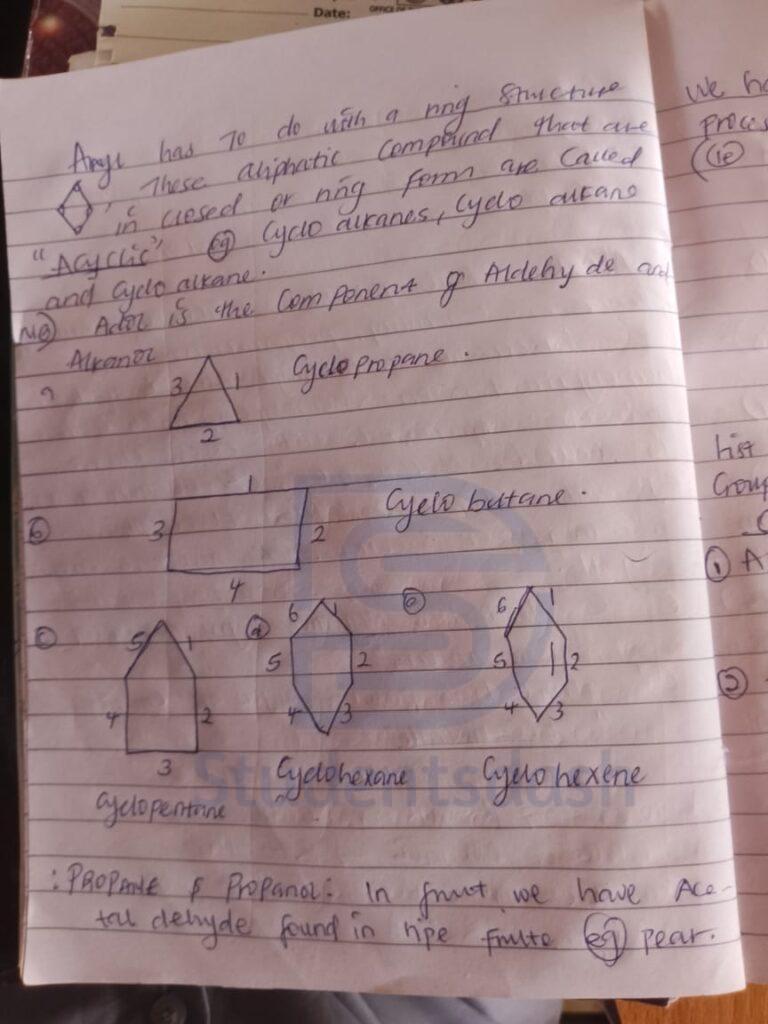 Date:
OFFICE OF
has To do with a ring Structure
, These aliphatic Compound that are
in closed or ring form are Called
"Acyclic" eg Cyclo alkanes, Cyclo alkane
and Cyclo alkane.
NB is the Component of Aldehyde and
Alkanol
3 1 Cyclopropane.
2
1
b 3 2 Cyclo butane.
4
c 5 1 d 6 1 e 6 1
4 2 5 2 5 2
3 4 3 4 3
Cyclopentane Cyclohexane Cyclohexene
Studentsdash
: PROPANE & Propanol: In fruit we have Ace-
tal dehyde found in ripe fruits eg pear.
We ha
proces
(ie
List
Group
1 A
2